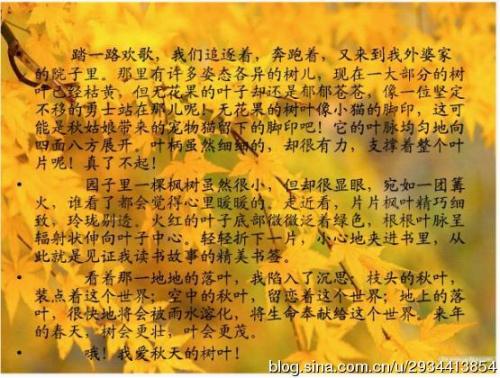 踏一路欢歌，我们追逐着，奔跑着，又来到我外婆家
的院子里。那里有许多姿态各异的树儿，现在一大部分的树
叶已经枯黄，但无花果的叶子却还是郁郁苍苍，像一位坚定
不移的勇士站在那儿呢！无花果的树叶像小猫的脚印，这可
能是秋姑娘带来的宠物猫留下的脚印吧！它的叶脉均匀地向
四面八方展开。叶柄虽然细细的，却很有力，支撑着整个叶
片呢！真了不起！
• 园子里一棵枫树虽然很小，但却很显眼，宛如一团篝
火，谁看了都会觉得心里暖暖的。走近看，片片枫叶精巧细
致，玲珑剔透。火红的叶子底部微微泛着绿色，根根叶脉呈
辐射状伸向叶子中心。轻轻折下一片，小心地夹进书里，从
此就是见证我读书故事的精美书签。
• 看着那一地地的落叶，我陷入了沉思：枝头的秋叶，
装点着这个世界；空中的秋叶，留恋着这个世界；地上的落
叶，很快地将会被雨水溶化，将生命奉献给这个世界。来年
的春天，树会更壮，叶会更茂。
• 哦！我爱秋天的树叶！
blog.sina.com.cn/u/2934413854